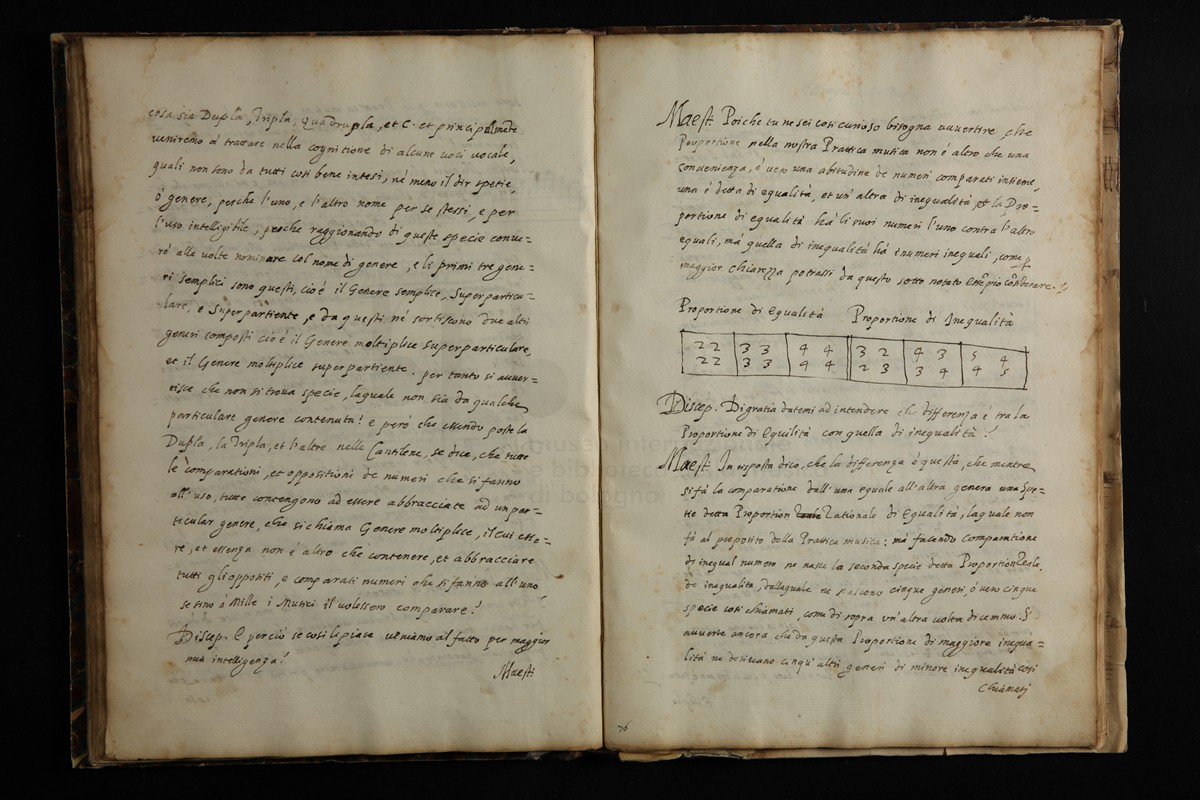 cosa sia Dupla, Tripla, quadrupla, et C. et principalmẽte
veniremo à trattare nella cognitione di alcune voci vocale,
quali non sono da tutti così bene intesi, nè meno il dir spetie,
ò genere, perche l'uno, e l'altro nome per se stessi, e per
l'uso intelligibile, perche raggionando di queste specie conue=
rò alle volte nominare col nome di genere, e li primi tre gene=
ri semplici sono questi, cioè il Genere semplice, Superparticu=
lare, e Superpartiente, e da questi nè sortiscono due altri
generi composti cio è il Genere moltiplice superparticulare,
et il Genere moltiplice superpartiente. per tanto si auuer=
tisce che non si troua specie, laquale non sia da qualche
particulare genere contenuta! e però che essendo poste la
Dupla, la Tripla, et l'altre nelle Cantilene, se dice, che tutte
le comparationi, et oppositioni de numeri che si fanno
all'uso, tutte contengono ad essere abbracciate ad un par=
ticular genere, che si chiama Genere moltiplice, il cui esse=
re, et essenza non è altro che contenere, et abbracciare
tutti gli oppositi, e comparati numeri che si fanno all'uno,
se sino à Mille i Musici il uolessero comparare!
Discep. E perciò se così le piace ueniamo al fatto per maggior
mia intelligenza!
Maest.
Maest. Poiche tu ne sei così curioso bisogna auuertire che
Proportione nella nostra Prattica musica non è altro che una
conuenienza, ò uero una abitudine de numeri comparati insieme,
una è detta di equalità, et un'altra di inequalità, la Pro=
portione di equalità hà li suoi numeri l'uno contra l'altro
equali, mà quella di inequalità hà i numeri inequali, come p
maggior chiarezza potrassi da questo sotto notato essẽpio cõsiderare.
Proportione di Equalità Proportione di Inequalità
2 2 3 3 4 4 3 2 4 3 5 4
2 2 3 3 4 4 2 3 3 4 4 5
Discep. Di gratia datemi ad intendere che differenza è tra la
Proportione di Equilità con quella di inequalità!
Maest. In risposta dico, che la differenza è questa, che mentre
si fà la comparatione dall'una equale all'altra genera una Spe=
tie detta Proportion Rationale di Equalità, laquale non
fà al proposito della Prattica musica: mà facendo comparatione
di inequal numero ne nasce la seconda specie detta Proportion Reale
de inequalità, dallaquale ne nascono cinque generi, ò uero cinque
specie così chiamati come di sopra un'altra uolta dicemmo. E
auuerte ancora che da questa Proportione di maggiore inequa=
lità ne deriuano cinqu'altri generi di minore inequalità così
Chiamati
36